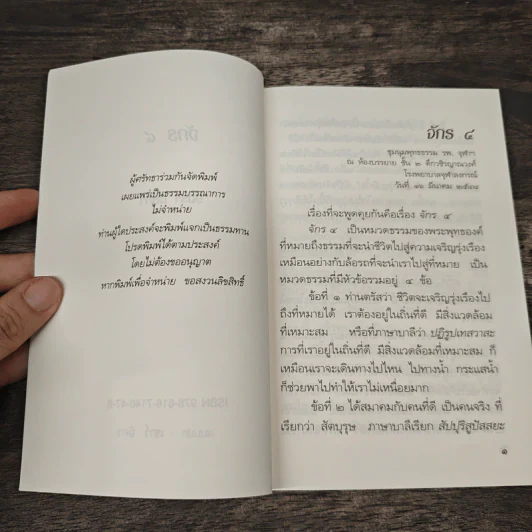 ผู้ศรัทธาร่วมกันจัดพิมพ์
เผยแพร่เป็นธรรมบรรณาการ
ไม่จำหน่าย
ท่านผู้ใดประสงค์จะพิมพ์แจกเป็นธรรมทาน
โปรดพิมพ์ได้ตามประสงค์
โดยไม่ต้องขออนุญาต
หากพิมพ์เพื่อจำหน่าย ขอสงวนลิขสิทธิ์
จักร ๔
ชุมนุมพุทธธรรม รพ. จุฬาฯ
ณ ห้องบรรยาย ชั้น ๒ ตึกวชิรญาณวงศ์
โรงพยาบาลจุฬาลงกรณ์
วันที่ มีนาคม
เรื่องที่จะพูดคุยกันคือเรื่อง จักร ๔
จักร ๔ เป็นหมวดธรรมของพระพุทธองค์
ที่หมายถึงธรรมที่จะนำชีวิตไปสู่ความเจริญรุ่งเรือง
เหมือนอย่างกับล้อรถที่จะนำเราไปสู่ที่หมาย เป็น
หมวดธรรมที่มีหัวข้อรวมอยู่ ๔ ข้อ
ข้อที่ ๑ ท่านตรัสว่า ชีวิตจะเจริญรุ่งเรืองไป
ถึงที่หมายได้ เราต้องอยู่ในถิ่นที่ดี มีสิ่งแวดล้อม
ที่เหมาะสม หรือที่ภาษาบาลีว่า ปฏิรูปเทสวาสะ
การที่เราอยู่ในถิ่นที่ดี มีสิ่งแวดล้อมที่เหมาะสม ก็
เหมือนเราจะเดินทางไปไหน ไปทางน้ำ กระแสน้ำ
ก็ช่วยพาไปทำให้เราไม่เหนื่อยมาก
ข้อที่ ๒ ได้สมาคมกับคนที่ดี เป็นคนจริง ที่
เรียกว่า สัตบุรุษ ภาษาบาลีเรียก สัปปุริสูปัสสยะ
๑